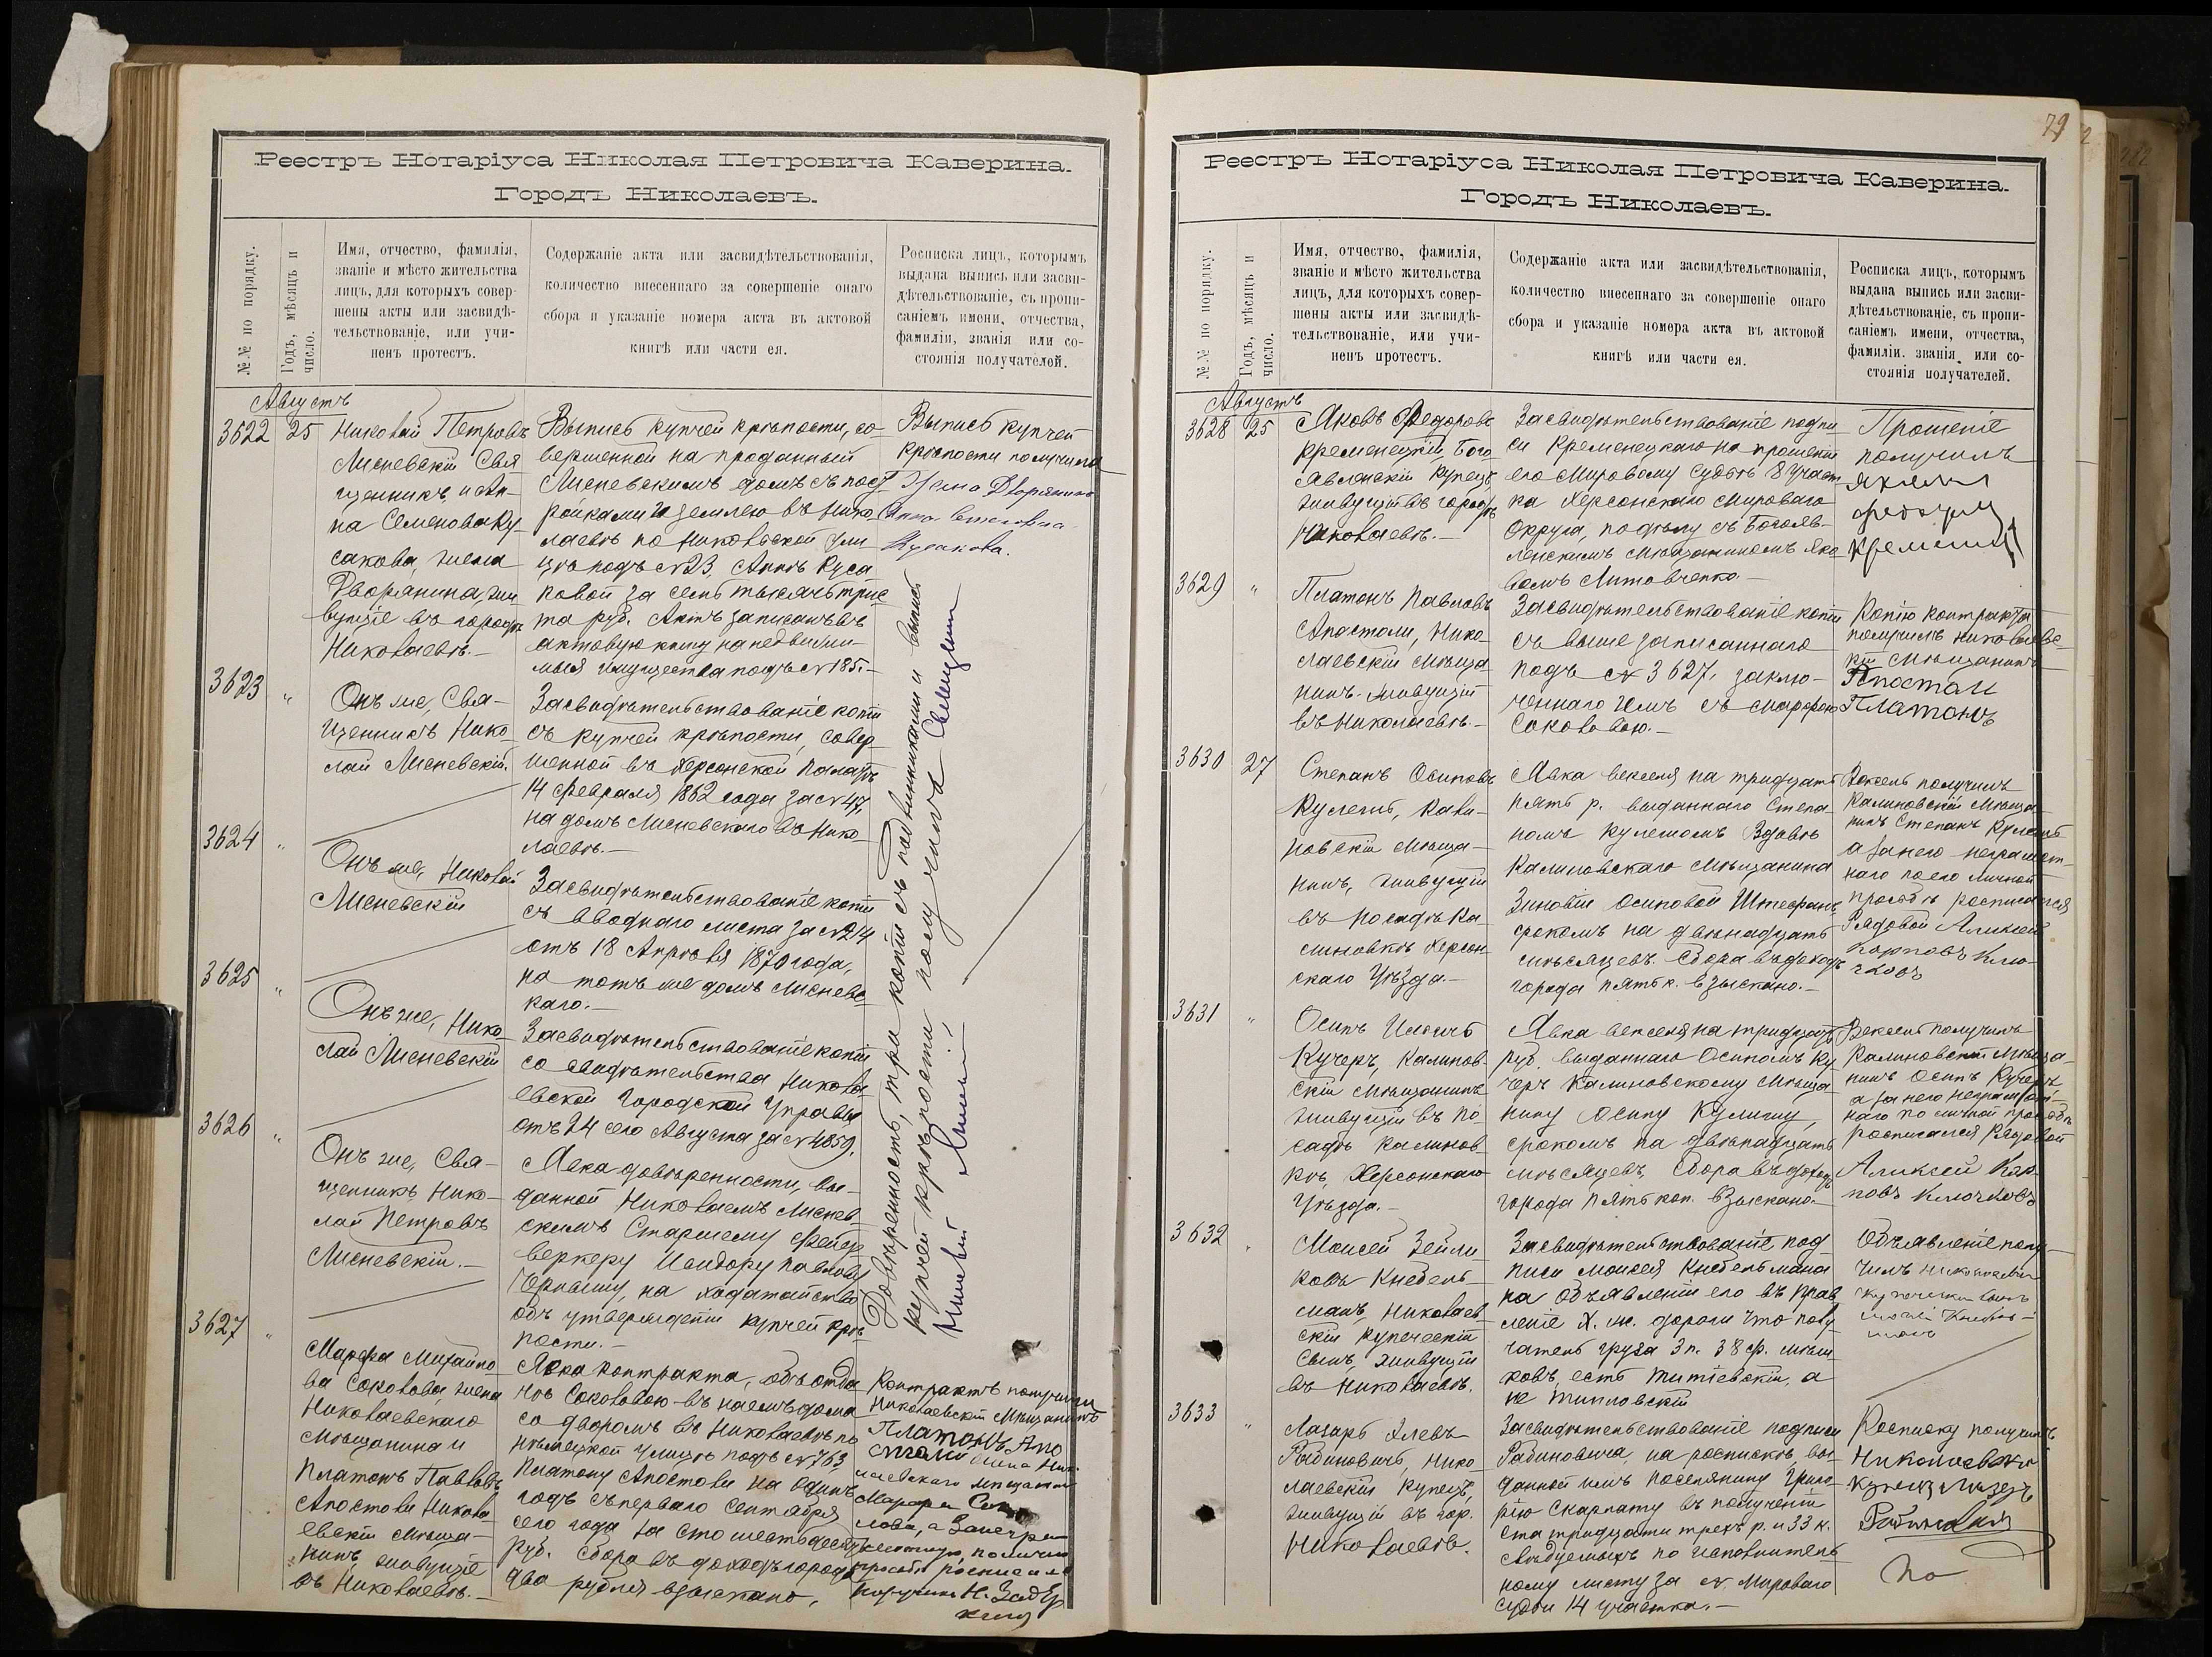 Реестръ Нотаріуса Николая Петровича Каверина.
Городъ Николаевъ.
№№ по порядку.
Годъ, мѣсяцъ и
число.
Имя, отчество, фамилія,
званіе и мѣсто жительства
лицъ, для которыхъ совер-
шены акты или засвидѣ-
тельствованіе, или учи-
ненъ протестъ.
Содержаніе акта или засвидѣтельствованія,
количество внесеннаго за совершеніе онаго
сбора и указаніе номера акта въ актовой
книгѣ или части ея.
Росписка лицъ, которымъ
выдана выпись или засви-
дѣтельствованіе, съ пропи-
саніемъ имени, отчества,
фамиліи, званія или со-
стоянія получателей.
Августъ
3622 25
Николай Петровъ
Лисневскій Свя
щенникъ и Ан-
на Семенова Ку
сакова, жена
Дворянина, жи
вущіе въ городѣ
Николаевѣ.-
Выпись купчей крѣпости, со-
вершенной на проданный
Лисневскимъ домъ съ пост
ройками и землею въ Нико
лаевѣ по Никольской ули
цѣ подъ № 23, Аннѣ Куса
ковой за семь тысячъ трис
та руб. Актъ записанъ въ
актовую книгу на недвижи
мыя имущества подъ № 185.-
Выпись купчей
крѣпости получила
Жена Дворянина
Анна Семеновна
Кусакова.
3623 "
Онъ же, Свя-
щенникъ Нико-
лай Лисневскій.
Засвидѣтельствованіе копіи
съ купчей крѣпости, совер
шенной въ Херсонской Палатѣ
14 Февраля 1862 года за № 47,
на домъ Лисневскаго въ Нико
лаевѣ.-
3624 "
Онъ же, Николай
Лисневскій
Засвидѣтельствованіе копіи
съ вводнаго листа за № 214
отъ 18 Апрѣля 1870 года,
на тотъ же домъ Лисневс
каго.-
3625 "
Онъ же, Нико
лай Лисневскій
Засвидѣтельствованіе копіи
со свидѣтельства Никола
евской Городской Управы
отъ 24 сего Августа за № 4859.
3626 "
Онъ же, Свя-
щенникъ Нико-
лай Петровъ
Лисневскій.-
Явка довѣренности, вы-
данной Николаемъ Лиснев
скимъ Старшему Фейер
веркеру Исидору Павлову
на ходатайство
объ утвержденіи купчей крѣ
пости.-
Довѣренность, три копіи съ подлинниками и выпись
купчей крѣпости получилъ Священникъ
Николай
3627 "
Марфа Михайло
ва Соколова, жена
Николаевскаго
Мѣщанина и
Платонъ Павловъ
Апостоли Никола
евскій Мѣща-
нинъ, живущіе
въ Николаевѣ.-
Явка контракта, объ отда
чѣ Соколовою въ наемъ дома
со дворомъ въ Николаевѣ по
Нѣмецкой улицѣ подъ № 763,
Платону Апостоли на одинъ
годъ съ перваго Сентября
сего года за сто шестьдесятъ
руб. Сбора въ доходъ города
два рубля взыскано,
Контрактъ получили
Николаевскій Мѣщанинъ
Платонъ Апо
столи жена Нико
лаевскаго мѣщанина
Марфа Соко
лова, а за неграм
отную, по личной
просьбѣ росписался
поручикъ Н.
79
Реестръ Нотаріуса Николая Петровича Каверина.
Городъ Николаевъ.
№№ по порядку.
Годъ, мѣсяцъ и
число.
Имя, отчество, фамилія,
званіе и мѣсто жительства
лицъ, для которыхъ совер-
шены акты или засвидѣ-
тельствованіе, или учи-
ненъ протестъ.
Содержаніе акта или засвидѣтельствованія,
количество внесеннаго за совершеніе онаго
сбора и указаніе номера акта въ актовой
книгѣ или части ея.
Росписка лицъ, которымъ
выдана выпись или засви-
дѣтельствованіе, съ пропи-
саніемъ имени, отчества,
фамиліи, званія или со-
стоянія получателей.
Августъ
3628 25
Яковъ Федоровъ
Кременецкій, Бого
явленскій купецъ
живущій въ городѣ
Николаевѣ.-
Засвидѣтельствованіе подпи
си Кременецкаго на прошеніи
его Мировому Судьѣ 8 участ
ка Херсонскаго Мироваго
Округа, по дѣлу съ Богояв-
ленскимъ Мѣщаниномъ Яко
вомъ Литовченко.-
Прошеніе
получилъ
3629 "
Платонъ Павловъ
Апостоли, Нико-
лаевскій мѣща
нинъ, живущій
въ Николаевѣ.-
Засвидѣтельствованіе копіи
съ выше записаннаго
подъ № 3627, заклю-
ченнаго имъ съ Марфою
Соколовою.-
Копію контракта
получилъ Николаевс-
кій Мѣщанинъ
Апостоли
Платонъ
3630 27
Степанъ Осиповъ
Кулешъ, Кали-
новскій Мѣща-
нинъ, живущій
въ посадѣ Ка
линовкѣ Херсон
скаго Уѣзда.-
Явка векселя на тридцать
пять р. выданнаго Степа-
номъ Кулешомъ Вдовѣ
Калиновскаго Мѣщанина
Зиновіи Осиповой Штефанъ
срокомъ на двѣнадцать
мѣсяцевъ. Сбора въ доходъ
города пять к. взыскано.-
Вексель получилъ
Калиновскій Мѣща-
нинъ Степанъ Кулешъ
а за него неграмот-
наго по его личной
просьбѣ росписался
Рядовой Алексѣй
Карповъ Клю-
чковъ
3631 "
Осипъ
Кучеръ, Калинов
скій Мѣщанинъ
живущій въ по-
садѣ Калинов
кѣ, Херсонскаго
Уѣзда.-
Явка векселя на тридцать
руб. выданнаго Осипомъ Ку
черъ Калиновскому Мѣща
нину Осипу Кулишу,
срокомъ на двѣнадцать
мѣсяцевъ, Сбора въ доходъ
города пять коп. взыскано.-
Вексель получилъ
Калиновскій Мѣща-
нинъ Осипъ Кучеръ
а за него неграмот-
наго по личной просьбѣ
росписался Рядовой
Алексѣй Кар-
повъ Ключковъ
3632 "
Моисей Зейли
ковъ Кнебель-
манъ, Николаев
скій купеческій
сынъ, живущій
въ Николаевѣ.
Засвидѣтельствованіе под-
писи Моисея Кнебельмана
на объявленіи его въ Прав
леніе Х. Н. дороги что полу
чатель груза 3 п. 38 ф. мѣш
ковъ, есть Титіевскій, а
не Типловскій
Объявленіе полу-
чилъ Николаевскій
купеческій сынъ
3633 "
Лазарь
Рабиновичъ, Нико
лаевскій купецъ,
живущій въ гор.
Николаевѣ.
Засвидѣтельствованіе подписи
Рабиновича, на роспискѣ, вы-
данной имъ поселянину Григо
рію въ полученіи
ста тридцати трехъ р. и 33 к.
слѣдуемыхъ по исполнитель
ному листу за № Мироваго
Судьи 14 участка.-
Росписку получилъ
Николаевскій
купецъ Лазарь
Рабиновичъ